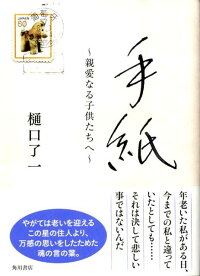 手紙
〜親愛なる子供たちへ〜
樋口了一
年老いた私がある日、
今までの私と違って
いたとしても……
それは決して悲しい
事ではないんだ
やがては老いを迎える
この星の住人より、
万感の思いをしたためた
魂の言の葉。
角川書店
NIPPON
80